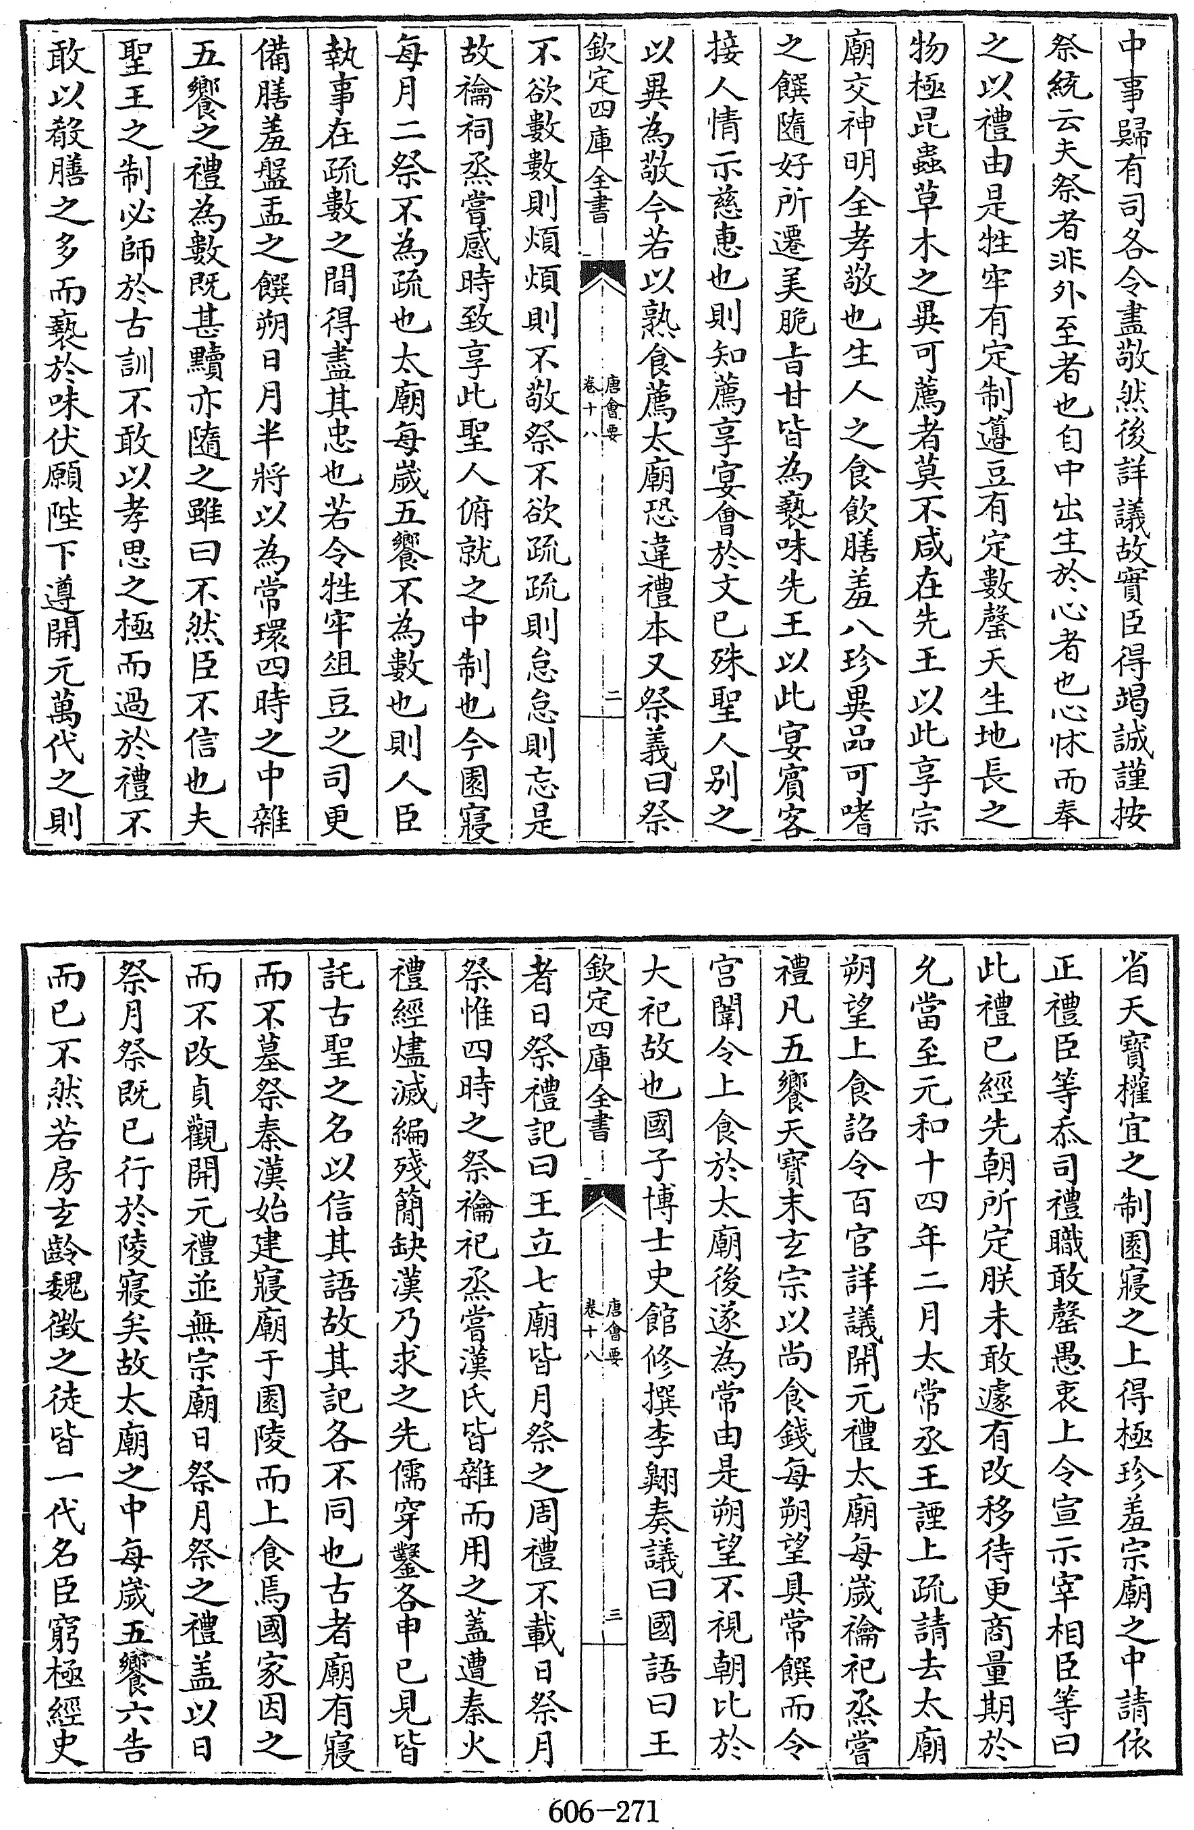 中事歸有司各令盡敬然後詳議故實臣得竭誠謹按
祭統云夫祭者非外至者也自中出生於心者也心怵而奉
之以禮由是牲牢有定制籩豆有定數罄天生地長之
物極昆蟲草木之異可薦者莫不咸在先王以此享宗
廟交神明全孝敬也生人之食飲膳羞八珍異品可嗜
之饌隨好所遷美脆旨甘皆為褻味先王以此宴賓客
接人情示慈惠也則知薦享宴會於文已殊聖人別之
以異為敬今若以熟食薦太廟恐違禮本又祭義曰祭
欽定四庫全書
唐會要
卷十八
二
不欲數數則煩煩則不敬祭不欲疏疏則怠怠則忘是
故禴祠烝嘗感時致享此聖人俯就之中制也今園寢
每月二祭不為疏也太廟每歲五饗不為數也則人臣
執事在疏數之間得盡其忠也若令牲牢俎豆之司更
備膳羞盤盂之饌朔日月半將以為常環四時之中雜
五饗之禮為數既甚黷亦隨之雖曰不然臣不信也夫
聖王之制必師於古訓不敢以孝思之極而過於禮不
敢以殽膳之多而褻於味伏願陛下遵開元萬代之則
省天寶權宜之制園寢之上得極珍羞宗廟之中請依
正禮臣等忝司禮職敢罄愚衷上令宣示宰相臣等曰
此禮已經先朝所定朕未敢遽有改移待更商量期於
允當至元和十四年二月太常丞王諲上疏請去太廟
朔望上食詔令百官詳議開元禮太廟每歲禴祀烝嘗
禮凡五饗天寶末玄宗以尚食錢每朔望具常饌而令
宮闈令上食於太廟後遂為常由是朔望不視朝比於
大祀故也國子博士史館修撰李翺奏議曰國語曰王
欽定四庫全書
唐會要
卷十八
三
者日祭禮記曰王立七廟皆月祭之周禮不載日祭月
祭惟四時之祭禴祀烝嘗漢氏皆雜而用之蓋遭秦火
禮經燼滅編殘簡缺漢乃求之先儒穿鑿各申己見皆
託古聖之名以信其語故其記各不同也古者廟有寢
而不墓祭秦漢始建寢廟于園陵而上食焉國家因之
而不改貞觀開元禮並無宗廟日祭月祭之禮盖以日
祭月祭既已行於陵寢矣故太廟之中每歲五饗六告
而已不然若房玄齡魏徵之徒皆一代名臣窮極經史
606-271